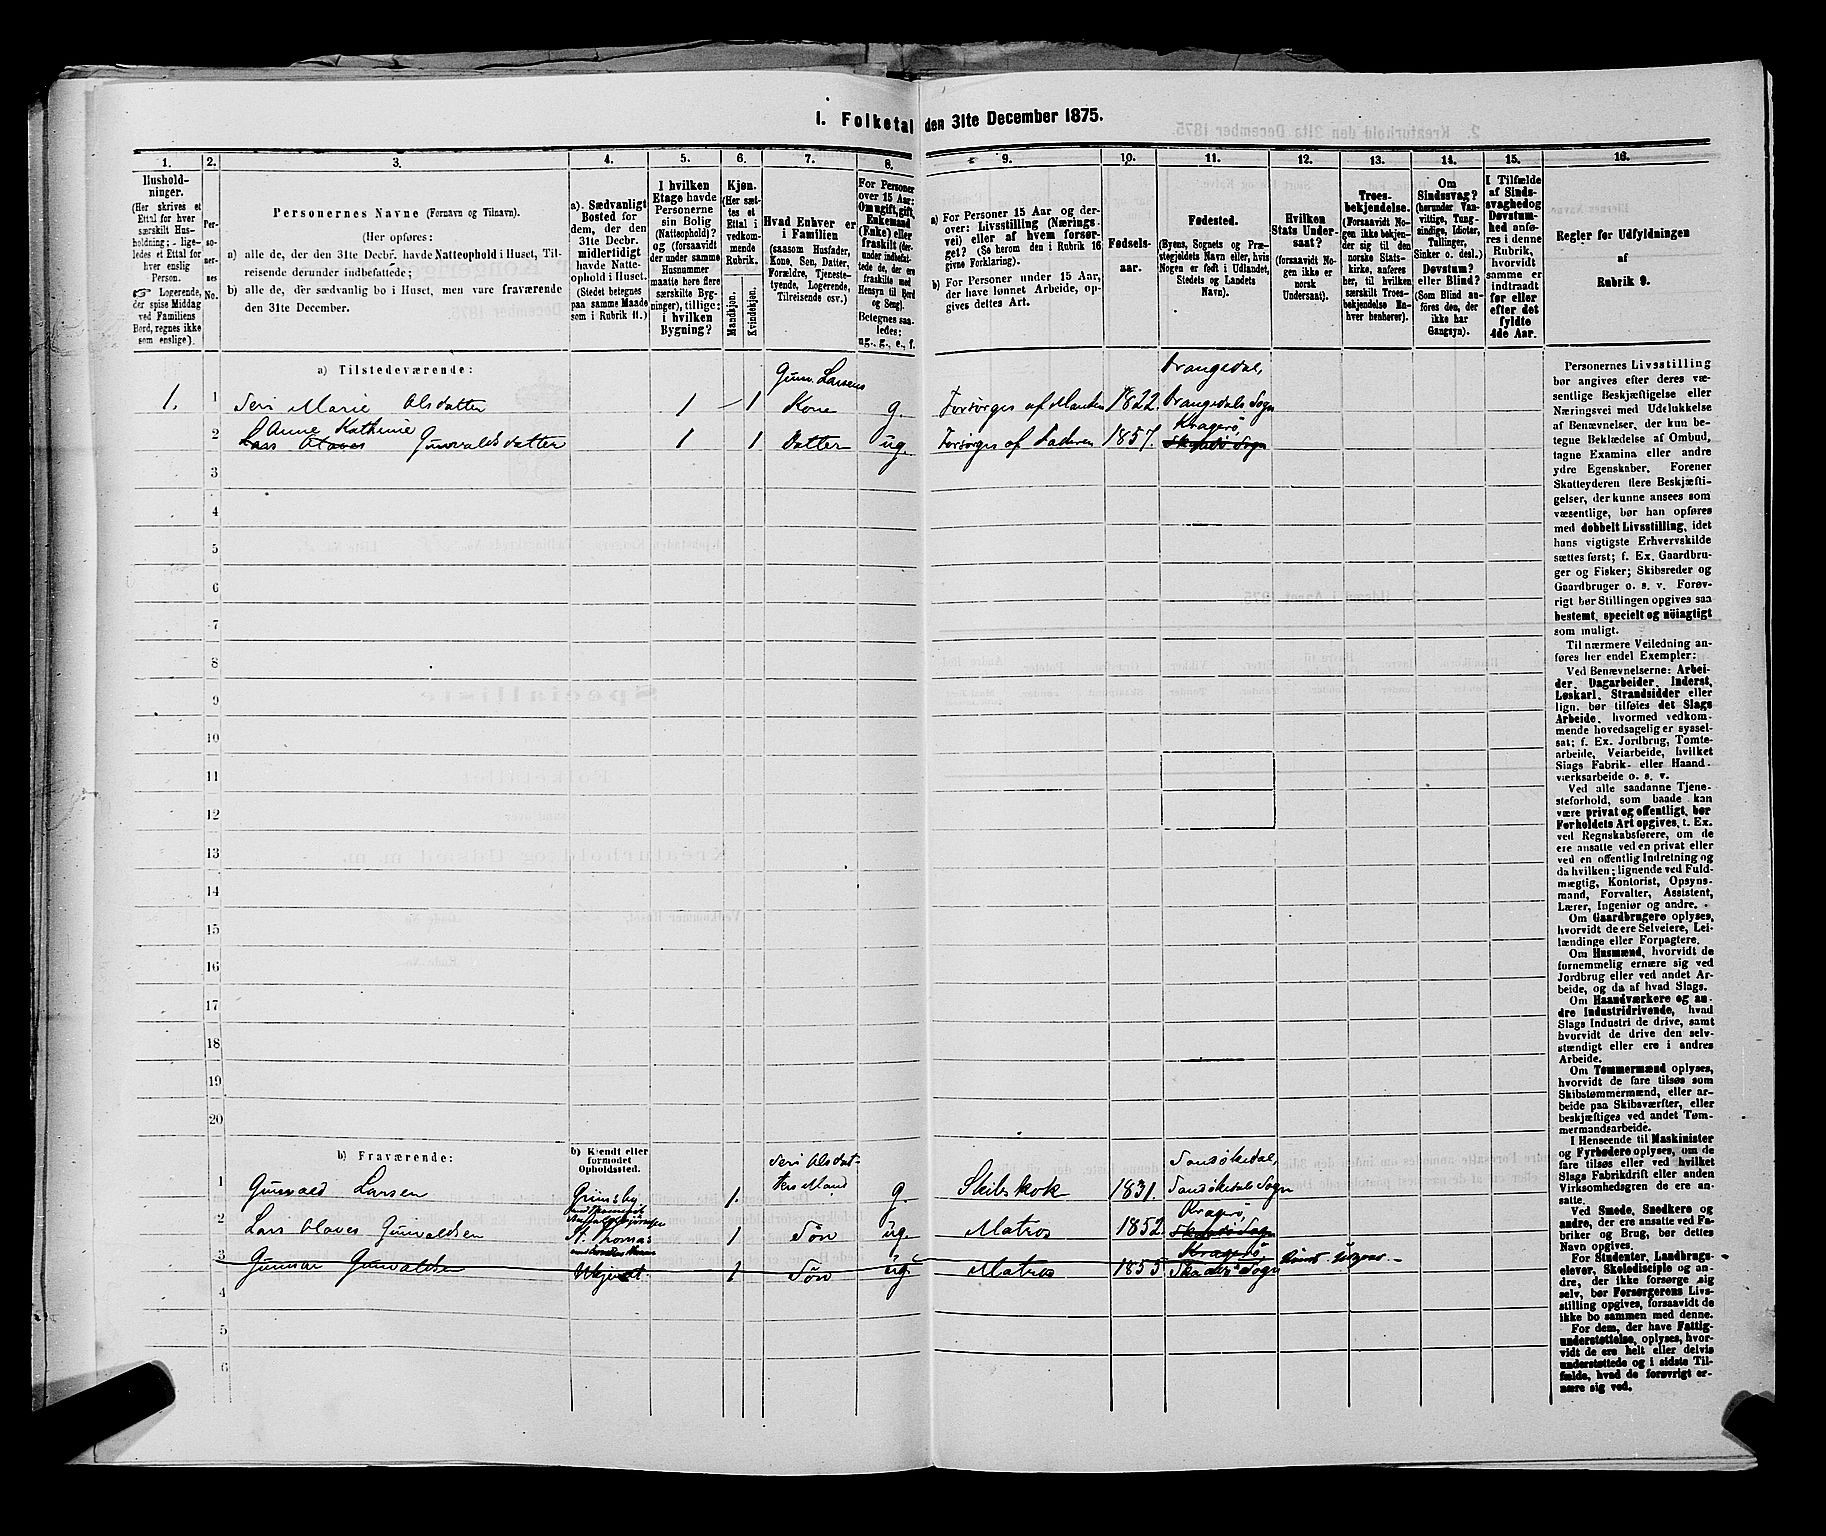 I. Folketal den 31te December 1875.
1. 2. 3. 4. 5. 6. 7. 8. 9. 10. 11. 12. 13. 14. 15. 16.
Husholdninger.
(Her skrives et
Ettal for hver
særskilt Husholdning;
ligeledes et Ettal for
hver enslig
Person.
Logerende,
der spise Middag
ved Familiens
Bord, regnes ikke
som enslige).
Personernes
No.
Personernes Navne (Fornavn og Tilnavn).
(Her opføres:
a) alle de, der den 31te Decbr. havde Natteophold i Huset, Tilreisende
derunder indbefattede;
b) alle de, der sædvanlig bo i Huset, men vare fraværende
den 31te December.
a). Sædvanligt
Bosted for
dem, der den
31te Decbr.
midlerlidigt
havde Natteophold
i Huset.
(Stedet betegnes
paa samme Maade
som i Rubrik 11.)
I hvilken
Etage havde
Personerne
sin Bolig
(Natteophold)?
og (forsaavidt
der under samme
Husnummer
maatte høre flere
særskilte Bygninger),
tillige:
i hvilken
Bygning?
Kjøn.
(Her sættes
et
Ettal i
vedkommende
Rubrik.
Mandkjøn.
Kvindekjøn.
Hvad Enhver er
i Familien
(saasom Husfader,
Kone, Søn, Datter,
Forældre, Tjenestetyende,
Logerende,
Tilreisende osv.)
For Personer
over 15 Aar:
Om ugift, gift,
Enkemand
(Enke) eller
fraskilt (derunder
indbefattede
de, der ere
fraskilte med
Hensyn til Bord
og Seng).
Betegnes saaledes:
ug., g., e., f.
a) For Personer 15 Aar og derover:
Livsstilling (Næringsvei)
eller af hvem forsørget?
(Se herom den i Rubrik 16
givne Forklaring).
b) For Personer under 15 Aar,
der have lønnet Arbeide, opgives
dettes Art.
Fødselsaar.
Fødested.
(Byens, Sognets og Præstegjeldets
Navn eller, hvis
Nogen er født i Udlandet,
Stedets og Landets
Navn).
Hvilken
Stats Undersaat?
(forsaavidt Nogen
ikke er
norsk
Undersaat).
Troesbekjendelse.
(Forsaavidt Nogen
ikke bekjender
sig til den
norske Statskirke,
anføres
her, til hvilken
særskilt Troesbekjendelse
Enhver
henhører).
Om
Sindssvag?
(herunder Vanvittige,
Tungsindige,
Idioter,
Tullinger,
Sinker o. desl.)
Døvstum?
eller Blind?
(Som Blind anføres
den, der
ikke har
Gangsyn).
I Tilfælde
af Sindssvaghed
og
Døvstumhed
anføres
i denne
Rubrik,
hvorvidt
samme er
indtraadt
før eller
efter det
fyldte
4de Aar.
Regler for Udfyldningen
af
Rubrik 9.
a) Tilstedeværende:
1. 1 Seri Marie Olsdatter 1 1 Gunv. Larsens Kone g. Forsørges af Manden 1822. Drangedal, Drangedals Sogn
2 Anne Kathrine
Lars Olaves Gunvaldsdatter 1 1 Datter ug. Forsørges af Faderen 1857. Kragerø, Skaatø Sogn
3
4
5
6
7
8
9
10
11
12
13
14
15
16
17
18
19
20
b) Fraværende:
b) Kjendt eller
formodet
Opholdssted.
1 Gunvald Larsen Grimsby 1. Seri Olsdatters Mand g. Skibskok 1831. Sandøkedal, Sandøkedals Sogn
2 Lars Olaves Gunvaldsen St. Thomas 1 Søn ug. Matros 1852. Kragerø, Skaatø Sogn
3 Gunnar Gunvaldsen Ukjendt. 1 Søn ug. Matros 1855 Kragerø Skaatø Sogn
4
5
6
Personernes Livsstilling
bør angives efter deres væsentlige
Beskjæftigelse eller
Næringsvei med Udelukkelse
af Benævnelser, der kun betegne
Beklædelse af Ombud,
tagne Examina eller andre
ydre Egenskaber. Forener
Skatteyderen flere Beskjæftigelser,
der kunne ansees som
væsentlige, bør han opføres
med dobbelt Livsstilling, idet
hans vigtigste Erhvervskilde
sættes først; f. Ex. Gaardbruger
og Fisker; Skibsreder og
Gaardbruger o. s. v. Forøvrigt
bør Stillingen opgives saa
bestemt, specielt og nöiagtigt
som muligt.
Til nærmere Veiledning anføres
her endel Exempler:
Ved Benævnelserne: Arbeider,
Dagarbeider, Inderst,
Løskarl, Strandsidder eller
lign. bør tilføies det Slags
Arbeide, hvormed vedkommende
hovedsagelig er sysselsat;
f. Ex. Jordbrug, Tomtearbeide,
Veiarbeide, hvilket
Slags Fabrik- eller Haandværksarbeide
o. s. v.
Ved alle saadanne Tjenesteforhold,
som baade kan
være privat og offentligt, bør
Forholdets Art opgives, t. Ex.
ved Regnskabsførere, om de
ere ansatte ved en privat eller
ved en offentlig Indretning og
da hvilken; lignende ved Fuldmægtig,
Kontorist, Opsynsmand,
Forvalter, Assistent,
Lærer, Ingeniør og andre.
Om Gaardbrugere oplyses,
hvorvidt de ere Selveiere, Leilændinge
eller Forpagtere.
Om Husmænd, hvorvidt de
fornemmelig ernære sig ved
Jordbrug eller ved andet Arbeide,
og da af hvad Slags.
Om Haandværkere og andre
Industridrivende, hvad
Slags Industri de drive, samt
hvorvidt de drive den selvstændigt
eller ere i andres
Arbeide.
Om Tømmermænd oplyses,
hvorvidt de fare tilsøs som
Skibstømmermænd, eller arbeide
paa Skibsværfter, eller
beskjæftiges ved andet Tømmermandsarbeide.
I Henseende til Maskinister
og Fyrbødere oplyses, om de
fare tilsøs eller ved hvilket
Slags Fabrikdrift eller anden
Virksomhedsgren de ere ansatte.
Ved Smede, Snedkere og
andre, der ere ansatte ved Fabriker
og Brug, bør dettes
Navn opgives.
For Studenter, Landbrugselever,
Skoledisciple og andre,
der ikke forsørge sig
selv, bør Forsørgerens Livsstilling
opgives, forsaavidt de
ikke bo sammen med denne.
For dem, der have Fattigunderstøttelse,
oplyses, hvorvidt
de ere helt eller delvis
understøttede og i sidste Tilfælde,
hvad de forøvrigt ernære
sig ved.